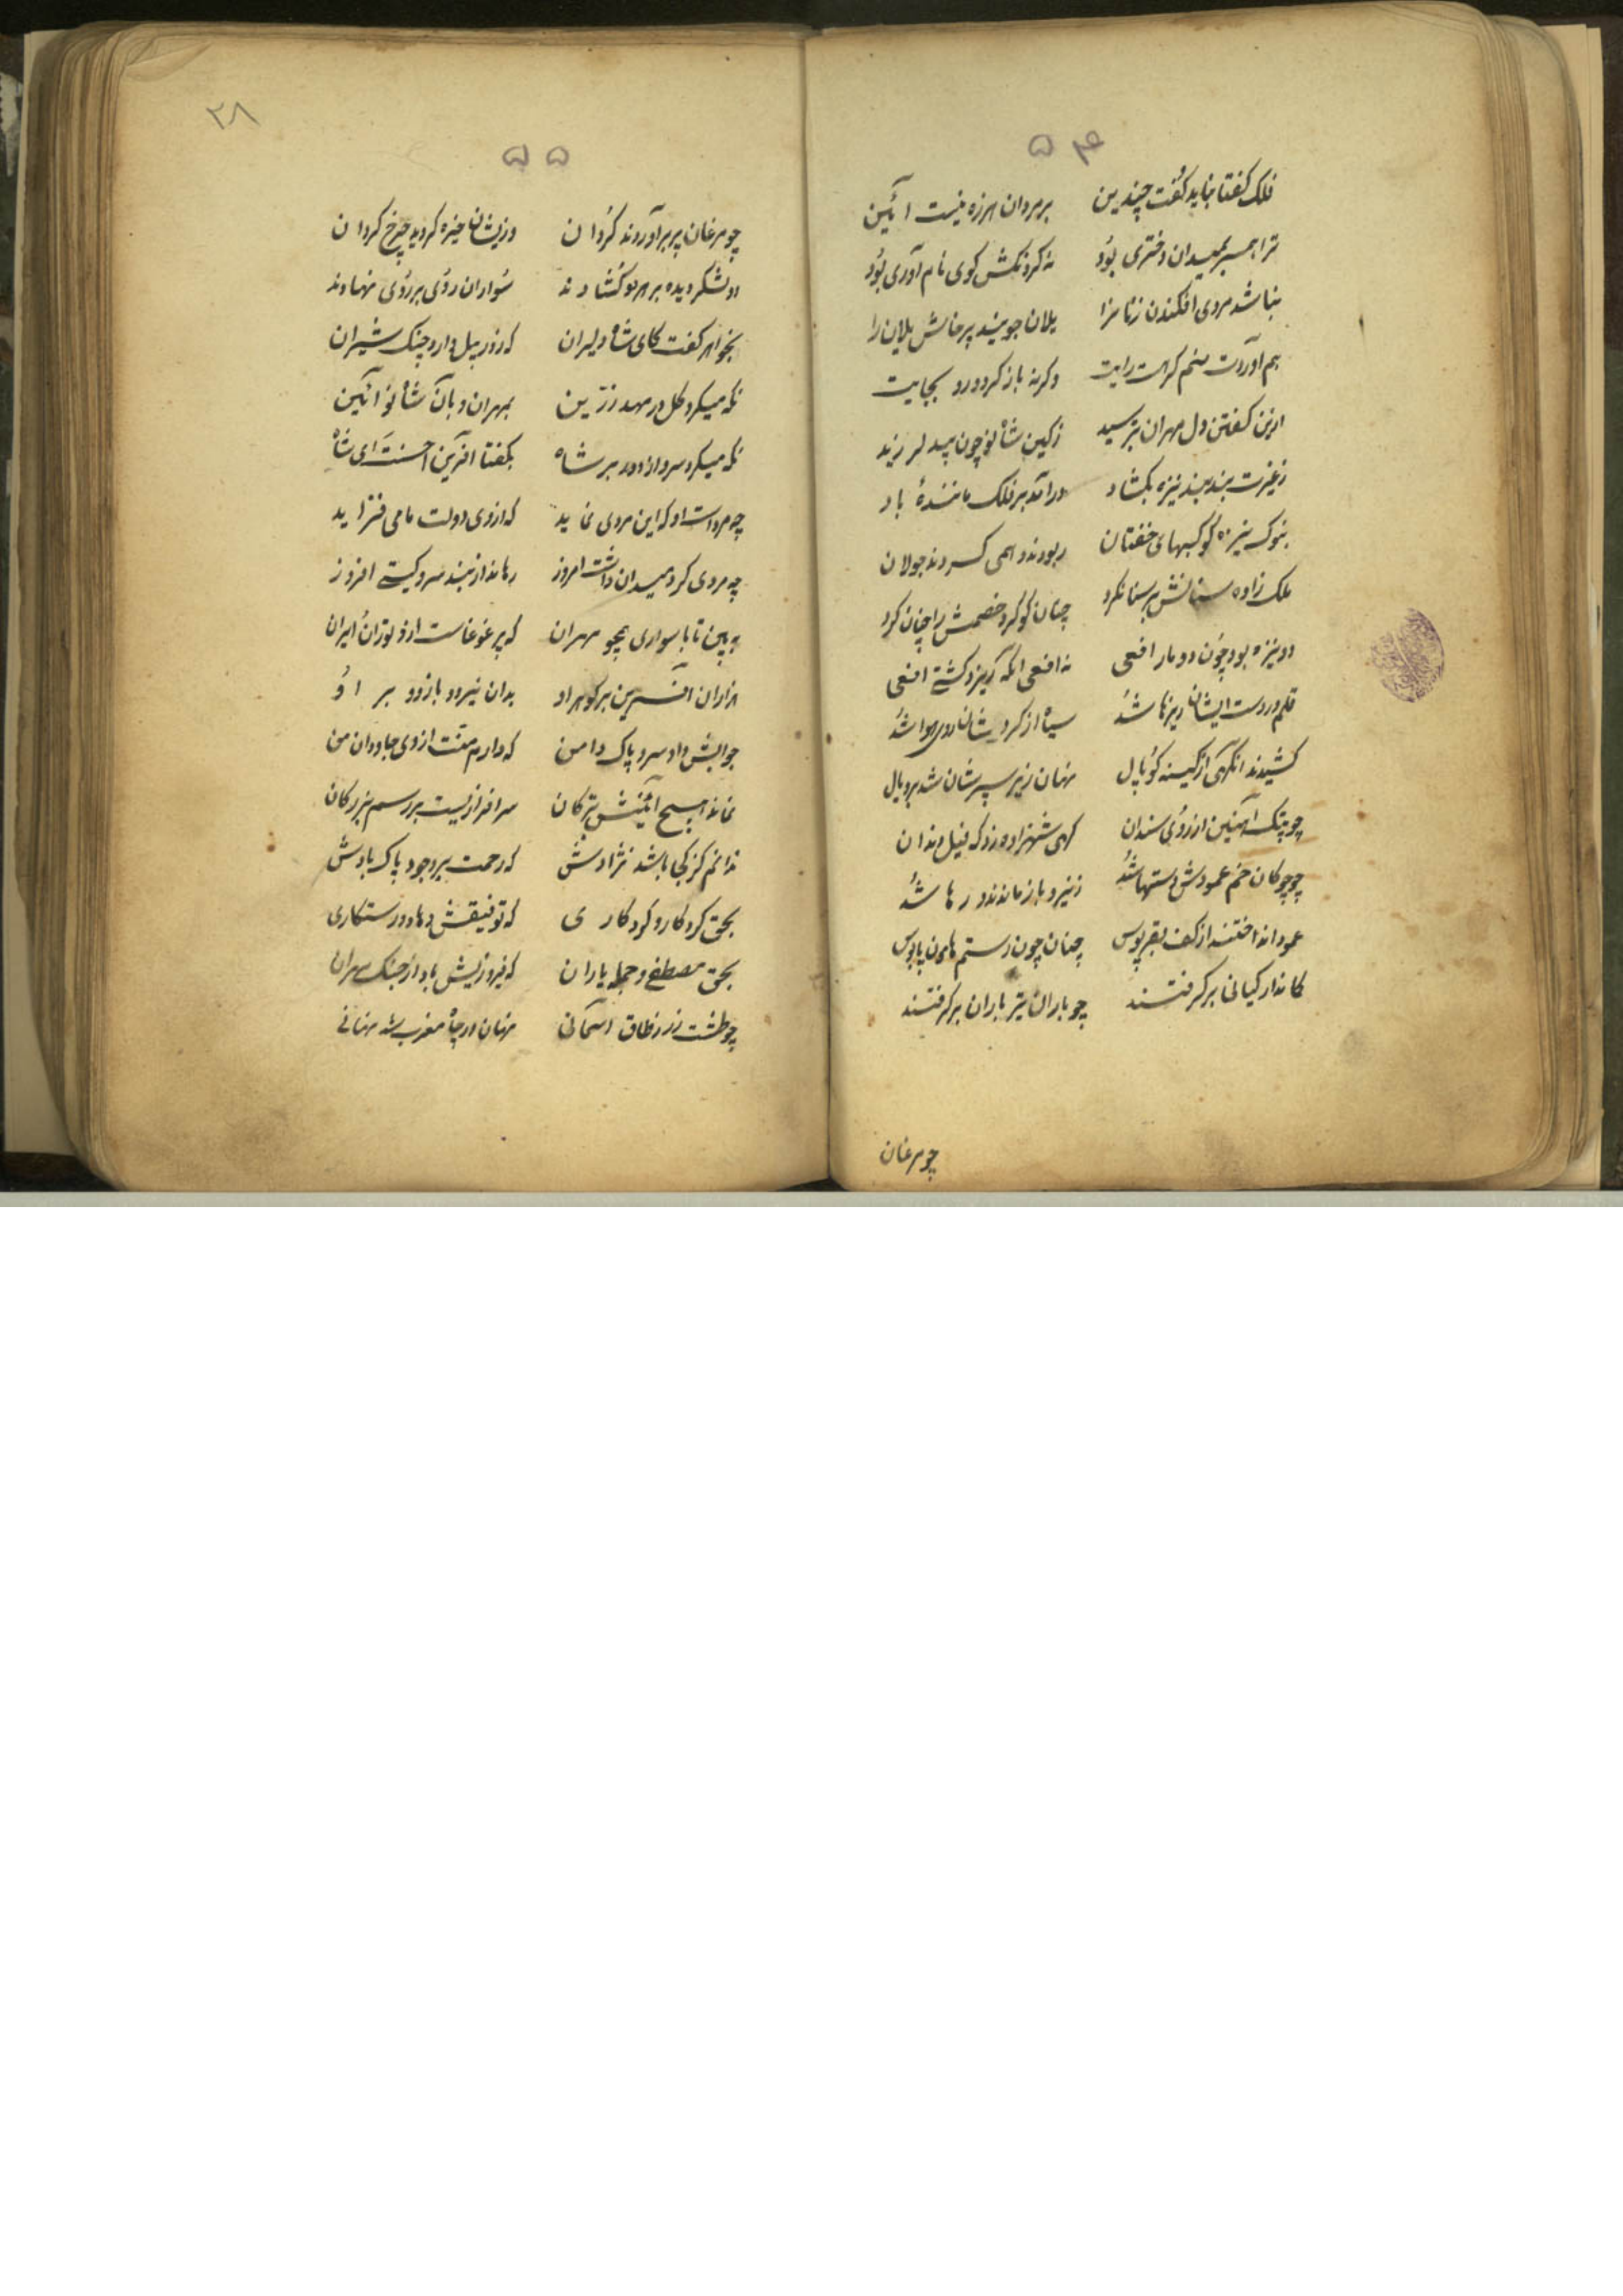 ۵۴
فلک گفتا نباید گفت چندین برمردان هرزه نیست آئین
ترا همسر بمیدان دختری بود نه گردنکش گوی نام آوری بود
نباشد مردی افکندن زنانرا یلان جویند پرخاش یلان را
بهم آوردت منم گر هست رایت وگرنه بازگرد و رو بجایت
ازین گفتن دل مهران بترسید زکین شاه نو چون بید لرزید
زغیرت بند بند نیزه بکشاد درآمد بر فلک مانندهٔ باد
بنوک نیزه کوکبهای خفتان ربودند و همی کردند جولان
ملک زاده سنانش بر سنان کرد چنان کو کرد خصمش را چنان کرد
دو نیزه بود چون دو مار افعی نه افعی آنکه گریزد کشتی افعی
قلم در دست ایشان ریزها شد سیاه از گرد ایشان روی هوا شد
کشیدند آنگهی از کینه کوپال نهان زیر سپرشان شد بر و یال
چو پتک آهنین از روی سندان گهی شهزاده زد گه فیل دندان
چو چوگان خم عمودش دستها شد زنیرو باز ماندند و رها شد
عمود انداختند از کف بقرپوس چنان چون رستم هامون پاپوس
کماندار کیانی برگرفتند چو باران تیر باران برگرفتند
چو مرغان
۲۸
۵۵
چو مرغان پر برآوردند گردان وزیشان خیره گردید چرخ گردان
دو لشکر دیده بر هر دو گشادند سواران روی بر روی نهادند
بخواهر گفت کای شاه دلیران که زور پیل دارد چنگ شیران
نگه میکرد گل در مهد زرین بمهران و بآن شاه نو آئین
نگه میکرد سرو آزاد در بر شاه بگفتا آفرین احسنت ای شاه
چه مرد است او که این مردی نماید که از وی دولت ما می فزاید
چه مردی کرد بمیدان داشت امروز رهاند از بند سرو گیتی افروز
ببین تا با سواری همچو مهران که پر غوغاست ازو توران و ایران
هزاران آفرین بر گوهر او بدان نیرو و بازو و بر او
جوابش داد سرو پاک دامن که دارم منت از وی جاودان من
نماند هیچ آئینش بترکان سرافرازیست بر رسم بزرگان
ندانم کز کجا باشد نژادش که رحمت بر وجود پاک بادش
بحق کردگار و کردگاری که توفیقش دهاد و رستگاری
بحق مصطفی و جمله یاران که فیروزیش باد از جنگ مهران
چو طشت زر زطاق آسمانی نهان در چاه مغرب شد نهانی